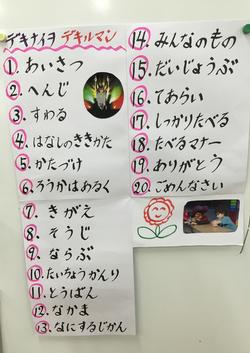 デキナイヲ デキルマン
1. あいさつ
2. へんじ
3. すわる
4. はなしのききかた
5. かたづけ
6. ろうかはあるく
7. きがえ
8. そうじ
9. ならぶ
10. たいちょうかんり
11. とうばん
12. なかま
13. なにするじかん
14. みんなのもの
15. だいじょうぶ
16. てあらい
17. しっかりたべる
18. たべるマナー
19. ありがとう
20. ごめんなさい